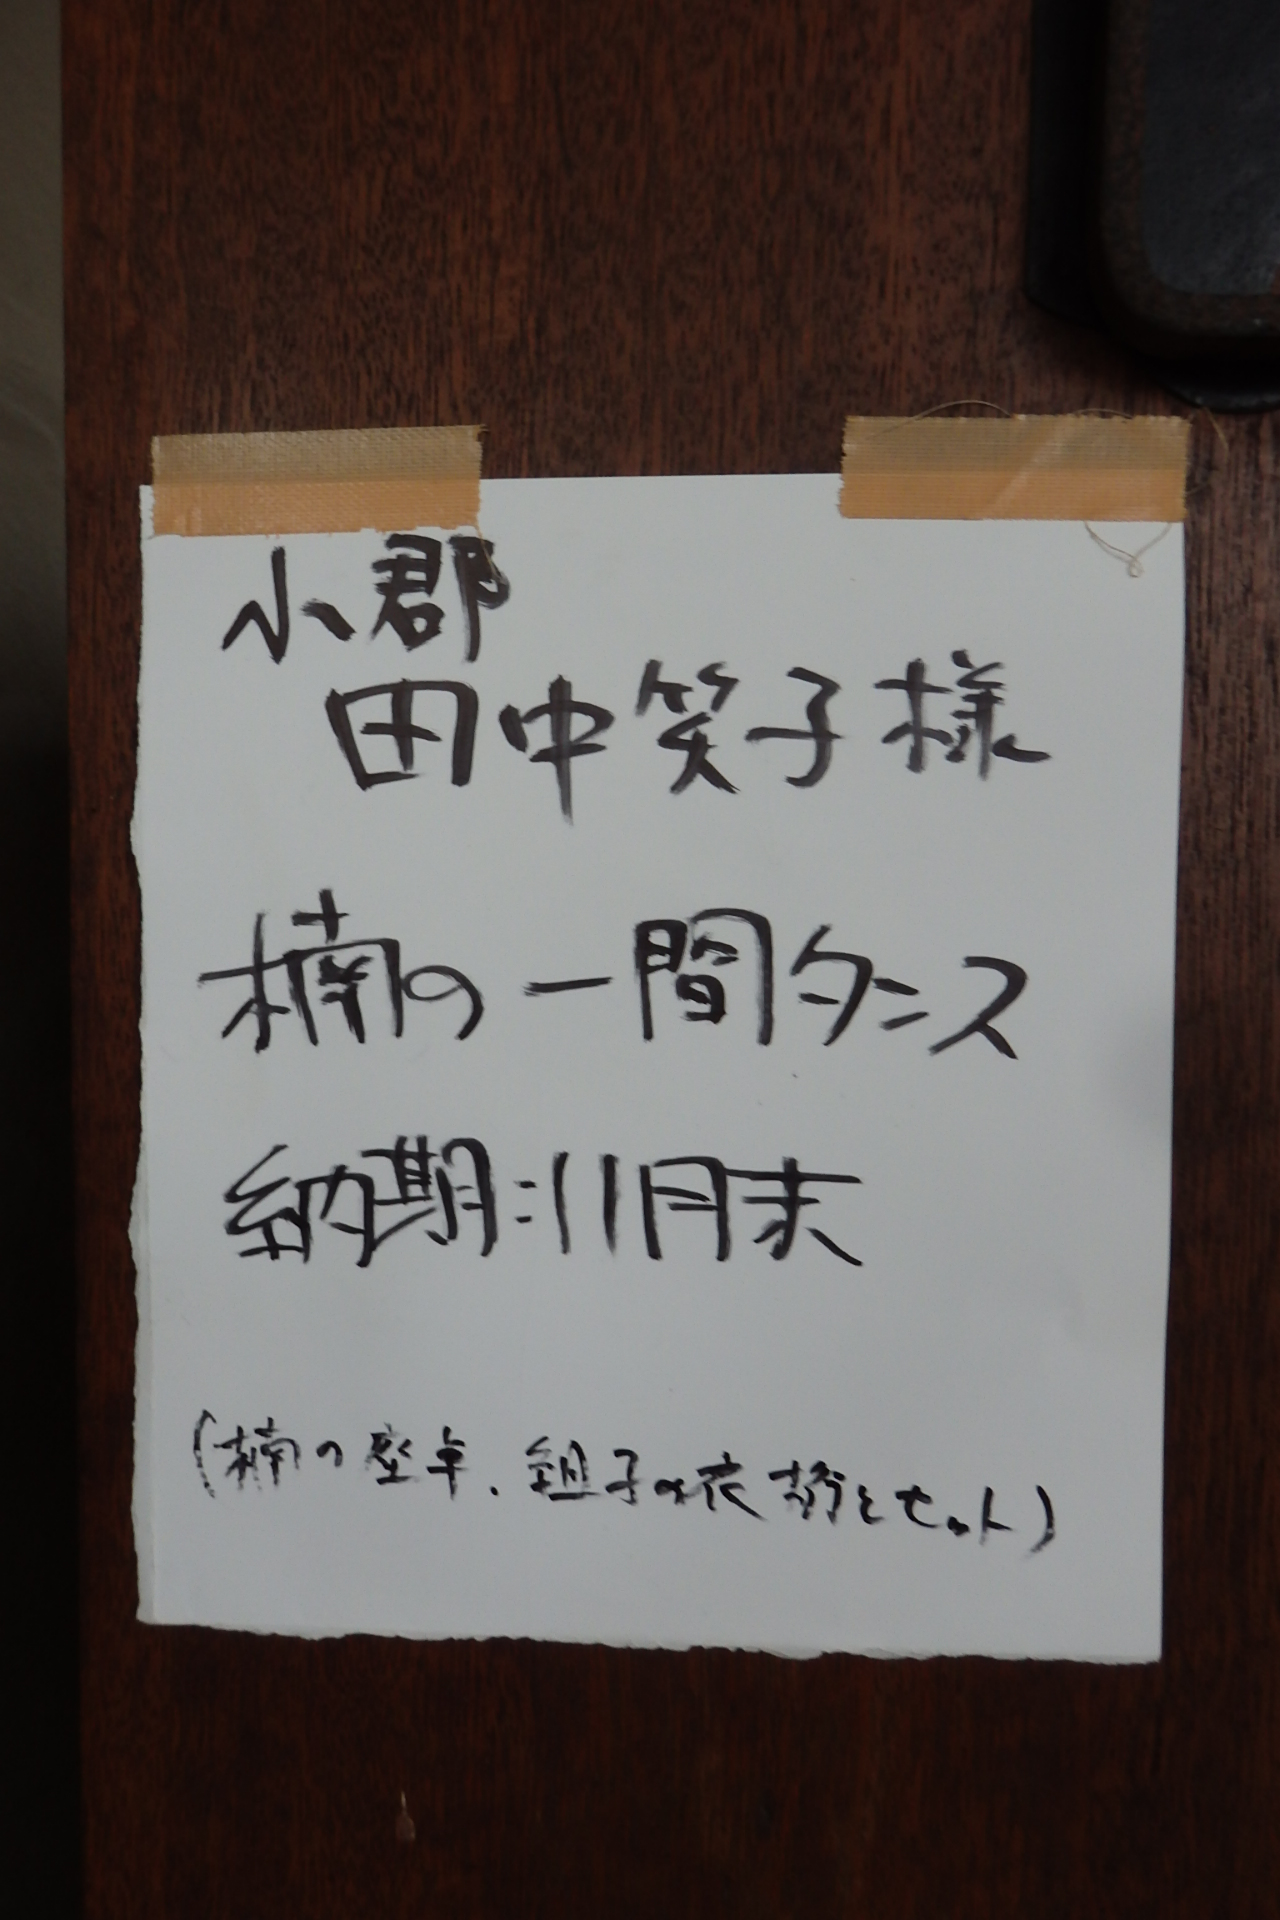 小郡
田中笑子様
楠の一間タンス
納期:11月末
(楠の座卓、組子の衣桁とセット)